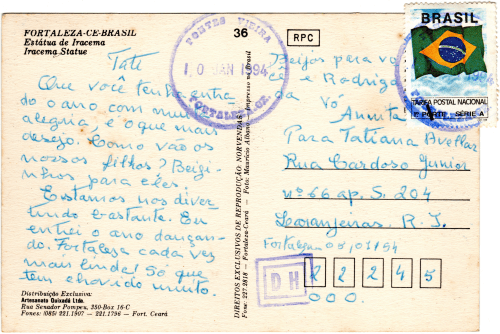 FORTALEZA-CE-BRASIL
Estátua de Iracema
Iracema Statue
Tati
Que você tenha entra-
do o ano com muita
alegria, é o que mais
desejo. Como vão os
nossos filhos? Beiji-
nhos para eles.
Estamos nos diver-
tindo bastante. Eu
entrei o ano dançan-
do. Fortaleza cada vez
mais linda! Só que
tem chovido muito.
Distribuição Exclusiva:
Artesanato Quixadá Ltda.
Rua Senador Pompeu, 350-Box 16-C
Fones: (085) 221.1907 - 221.1796 - Fort. Ceará
DIREITOS EXCLUSIVOS DE REPRODUÇÃO: NORVENDAS
Fone: 227-2818 - Fortaleza-Ceará - Foto: Maurício Albano - Impresso no Brasil
PONTES VIEIRA
10 JAN 1994
FORTALEZA-CE
36
RPC
BRASIL
TARIFA POSTAL NACIONAL
1º PORTE SÉRIE A
Beijos para vo-
cê e Rodrigo
da Vó
Para Tatiana Avellar
Rua Cardoso Junior
nº 66 ap. S. 204
Laranjeiras. R. J.
Fortaleza 05/01/94
DH
22245
000.